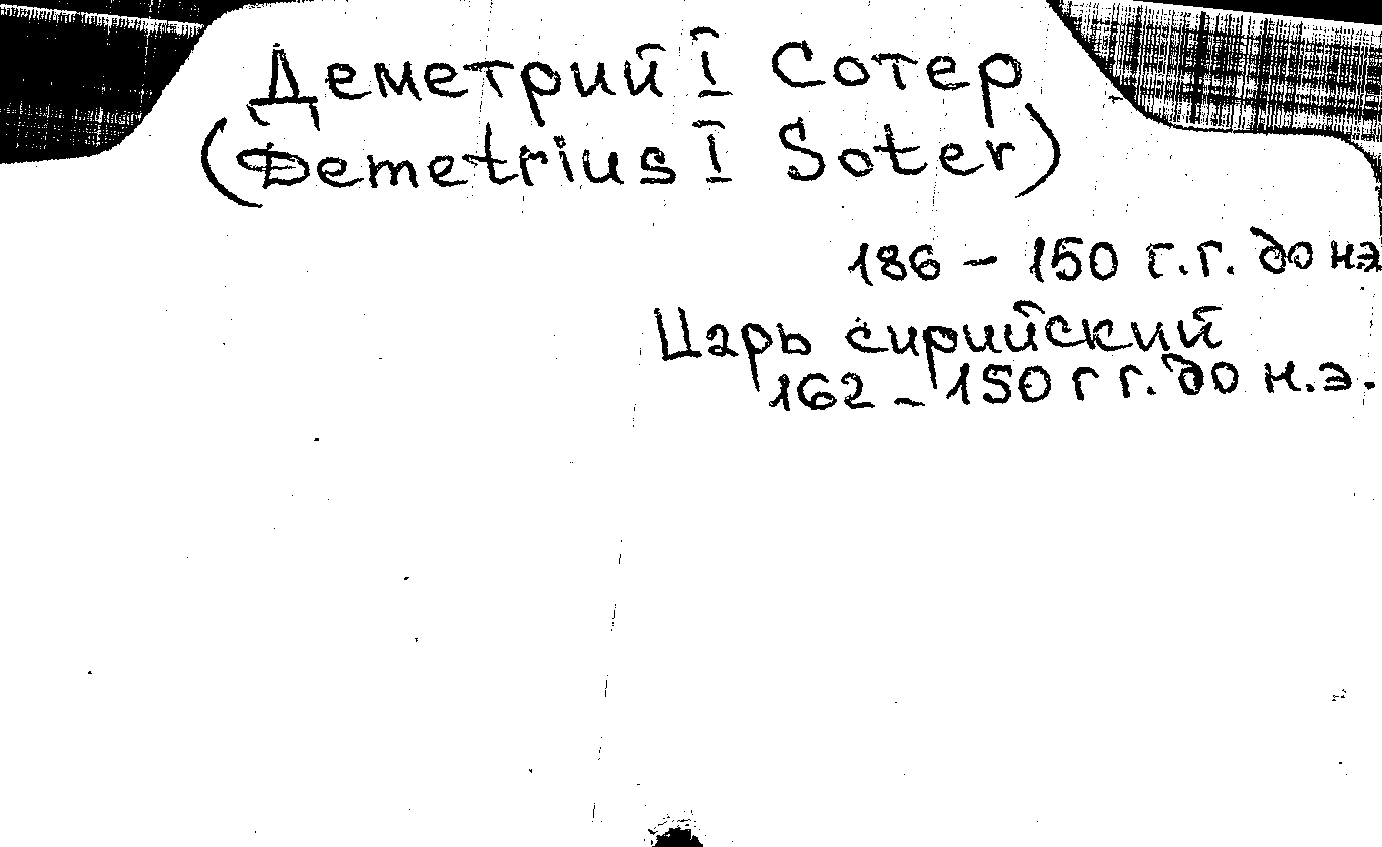 Деметрий I Сотер
(Demetrius I Soter)
186 – 150 г.г. до н.э
Царь сирийский
162 – 150 г г. до н.э.